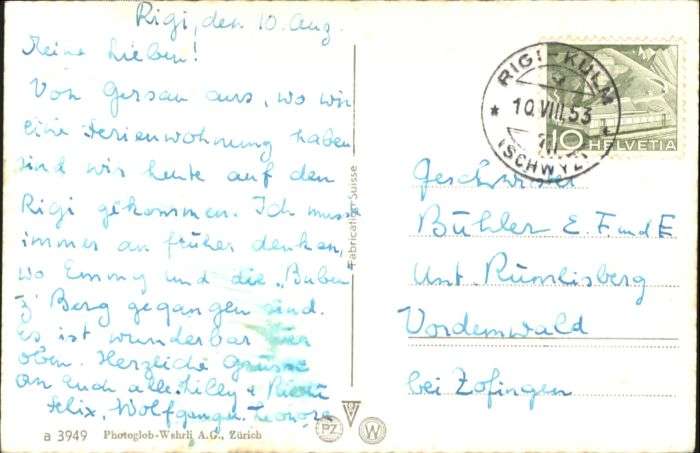 Rigi, den 10. Aug.
Meine Lieben!
Von Gersau aus, wo wir
eine Ferienwohnung haben
sind wir heute auf den
Rigi gekommen. Ich musste
immer an früher denken,
wo Emmy und die „Buben
z' Berg gegangen sind.
es ist wunderbar hier
oben. Herzliche Grüsse
an Euch alle. Lilly +
Felix, Wolfgang u. Leonore
a 3949 Photoglob-Wehrli A.G., Zürich
Fabrication Suisse
PZ
W
RIGI-KULM
10.VIII.53
(SCHWYZ)
10 HELVETIA
Geschwister
Bühler E. F. und E
Unt. Rümlisberg
Vordemwald
bei Zofingen